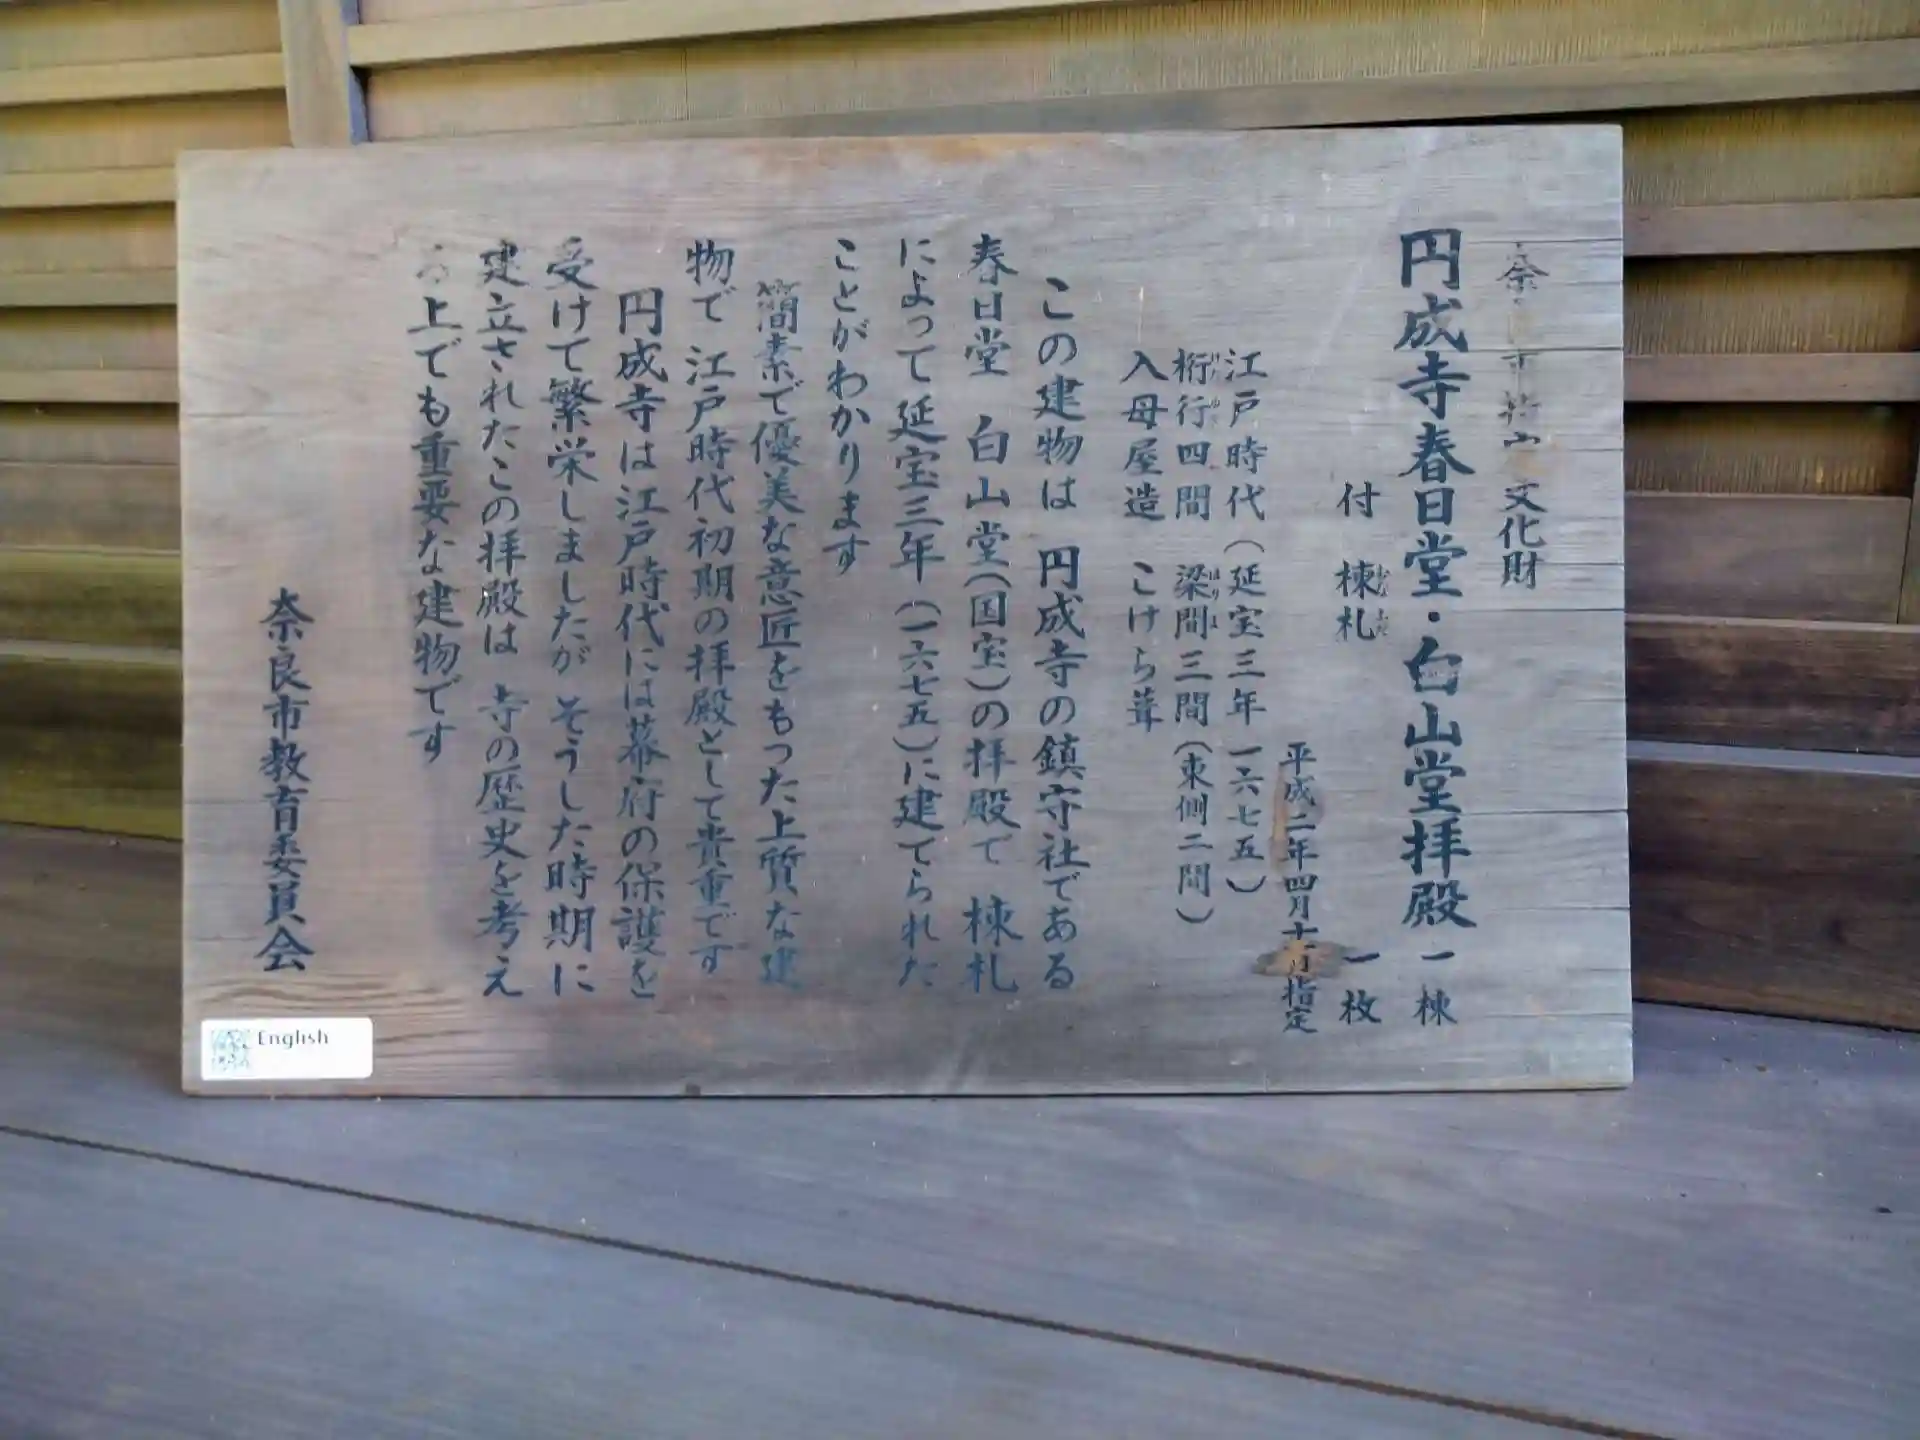 奈良市指定文化財
円成寺春日堂・白山堂拝殿 一棟
付 棟札 一枚
むなふだ
平成二年四月十一日指定
江戸時代(延宝三年 一六七五)
桁行四間 梁間三間(東側二間)
けたゆき はりま
入母屋造 こけら葺
この建物は 円成寺の鎮守社である
春日堂 白山堂(国宝)の拝殿で 棟札
によって延宝三年(一六七五)に建てられた
ことがわかります
簡素で優美な意匠をもった上質な建
物で 江戸時代初期の拝殿として貴重です
円成寺は江戸時代には幕府の保護を
受けて繁栄しましたが そうした時期に
建立されたこの拝殿は 寺の歴史を考え
る上でも重要な建物です
奈良市教育委員会
English